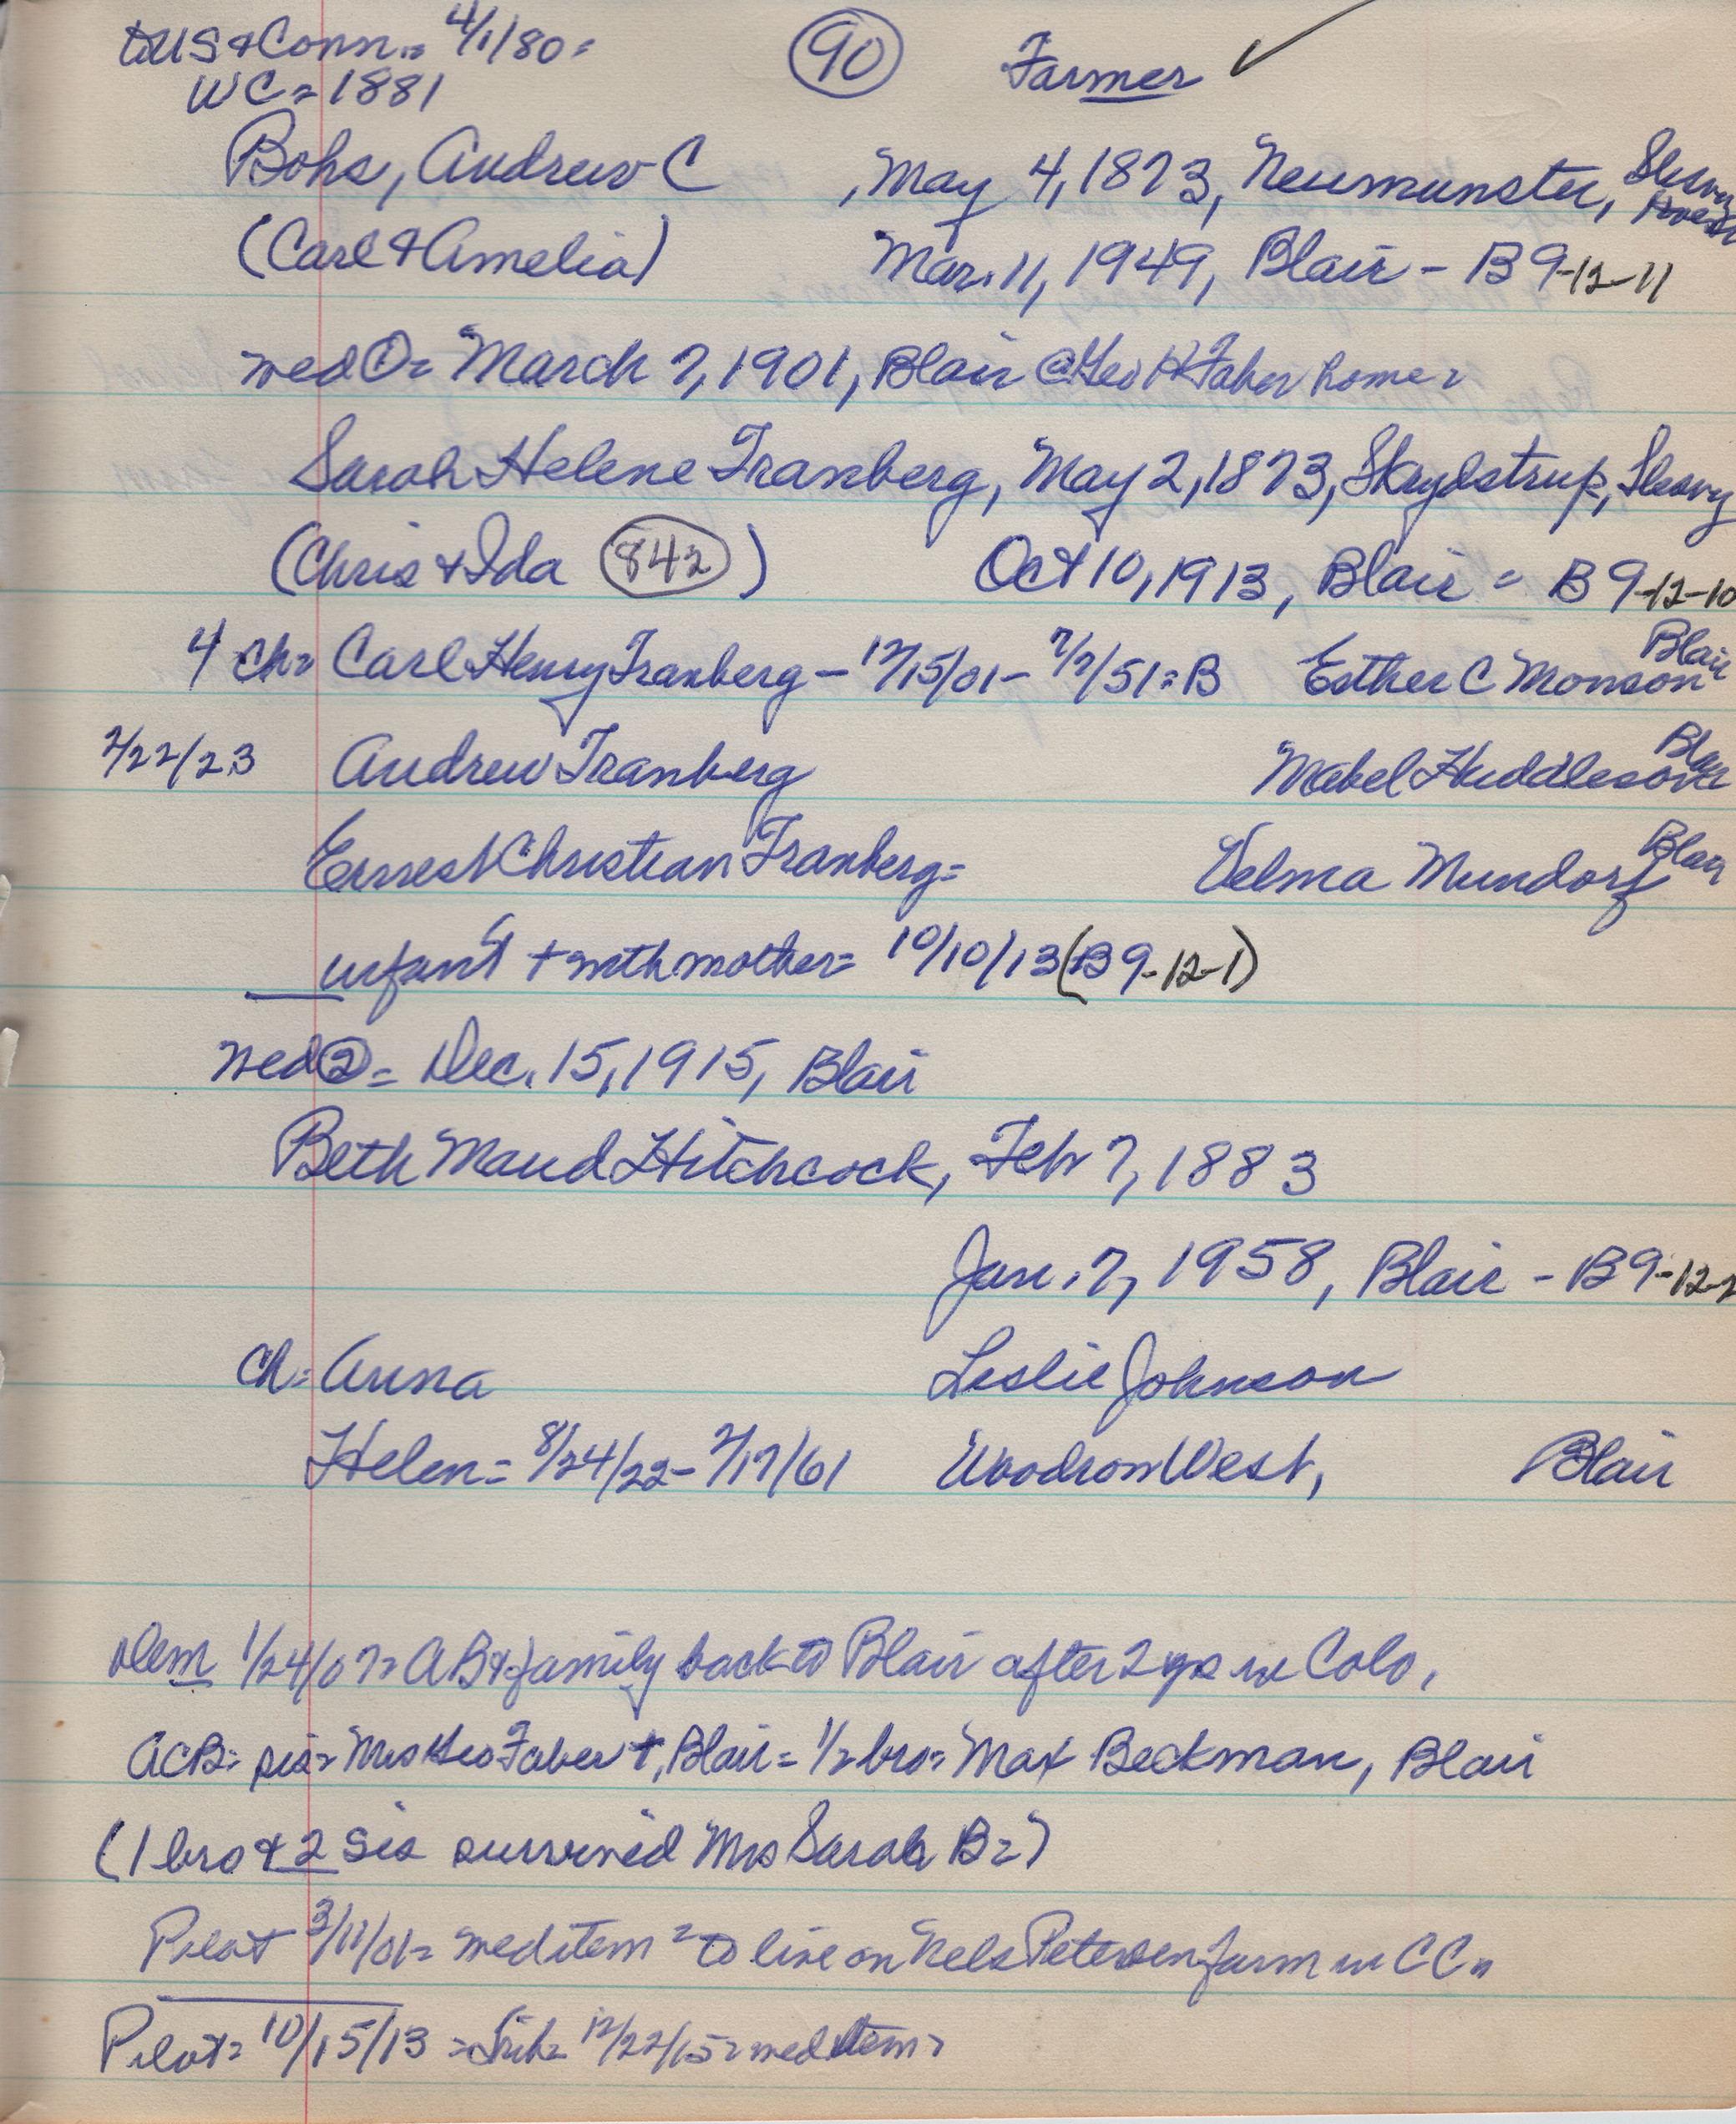 to US & Conn. = 4/1/80 =
90 Farmer ✓
WC = 1881
Bohs, Andrew C , May 4, 1873, Neumunster,
(Carl & Amelia) Mar. 11, 1949, Blair - B9-12-11
wed ① = March 7, 1901, Blair @ Geo H Faber home =
Sarah Helene Tranberg, May 2, 1873, Skrydstrup, Slesvg
(Chris & Ida 842) Oct 10, 1913, Blair = B9-12-10
4 ch = Carl Henry Tranberg - 12/15/01 - 7/7/51 = B Esther C Monson Blair
2/22/23 Andrew Tranberg Mabel Huddleson Blair
Ernest Christian Tranberg = Velma Mundorf Blair
infant + with mother = 10/10/13 (B9-12-1)
wed ② = Dec. 15, 1915, Blair
Beth Maud Hitchcock, Feb 7, 1883
Jan. 7, 1958, Blair - B9-12-2
ch = Anna Leslie Johnson
Helen = 8/24/22 - 2/17/61 Woodrow West, Blair
Dem 1/24/07 = AB & family back to Blair after 2 yrs in Colo.
ACB = sis = Mrs Geo Faber +, Blair = 1/2 bro = Max Beckman, Blair
(1 bro & 2 sis survived Mrs Sarah B =)
Pilot 3/11/01 = wed item = to live on Nels Petersen farm in CC =
Pilot = 10/15/13 = Trib = 12/22/15 = wed item =